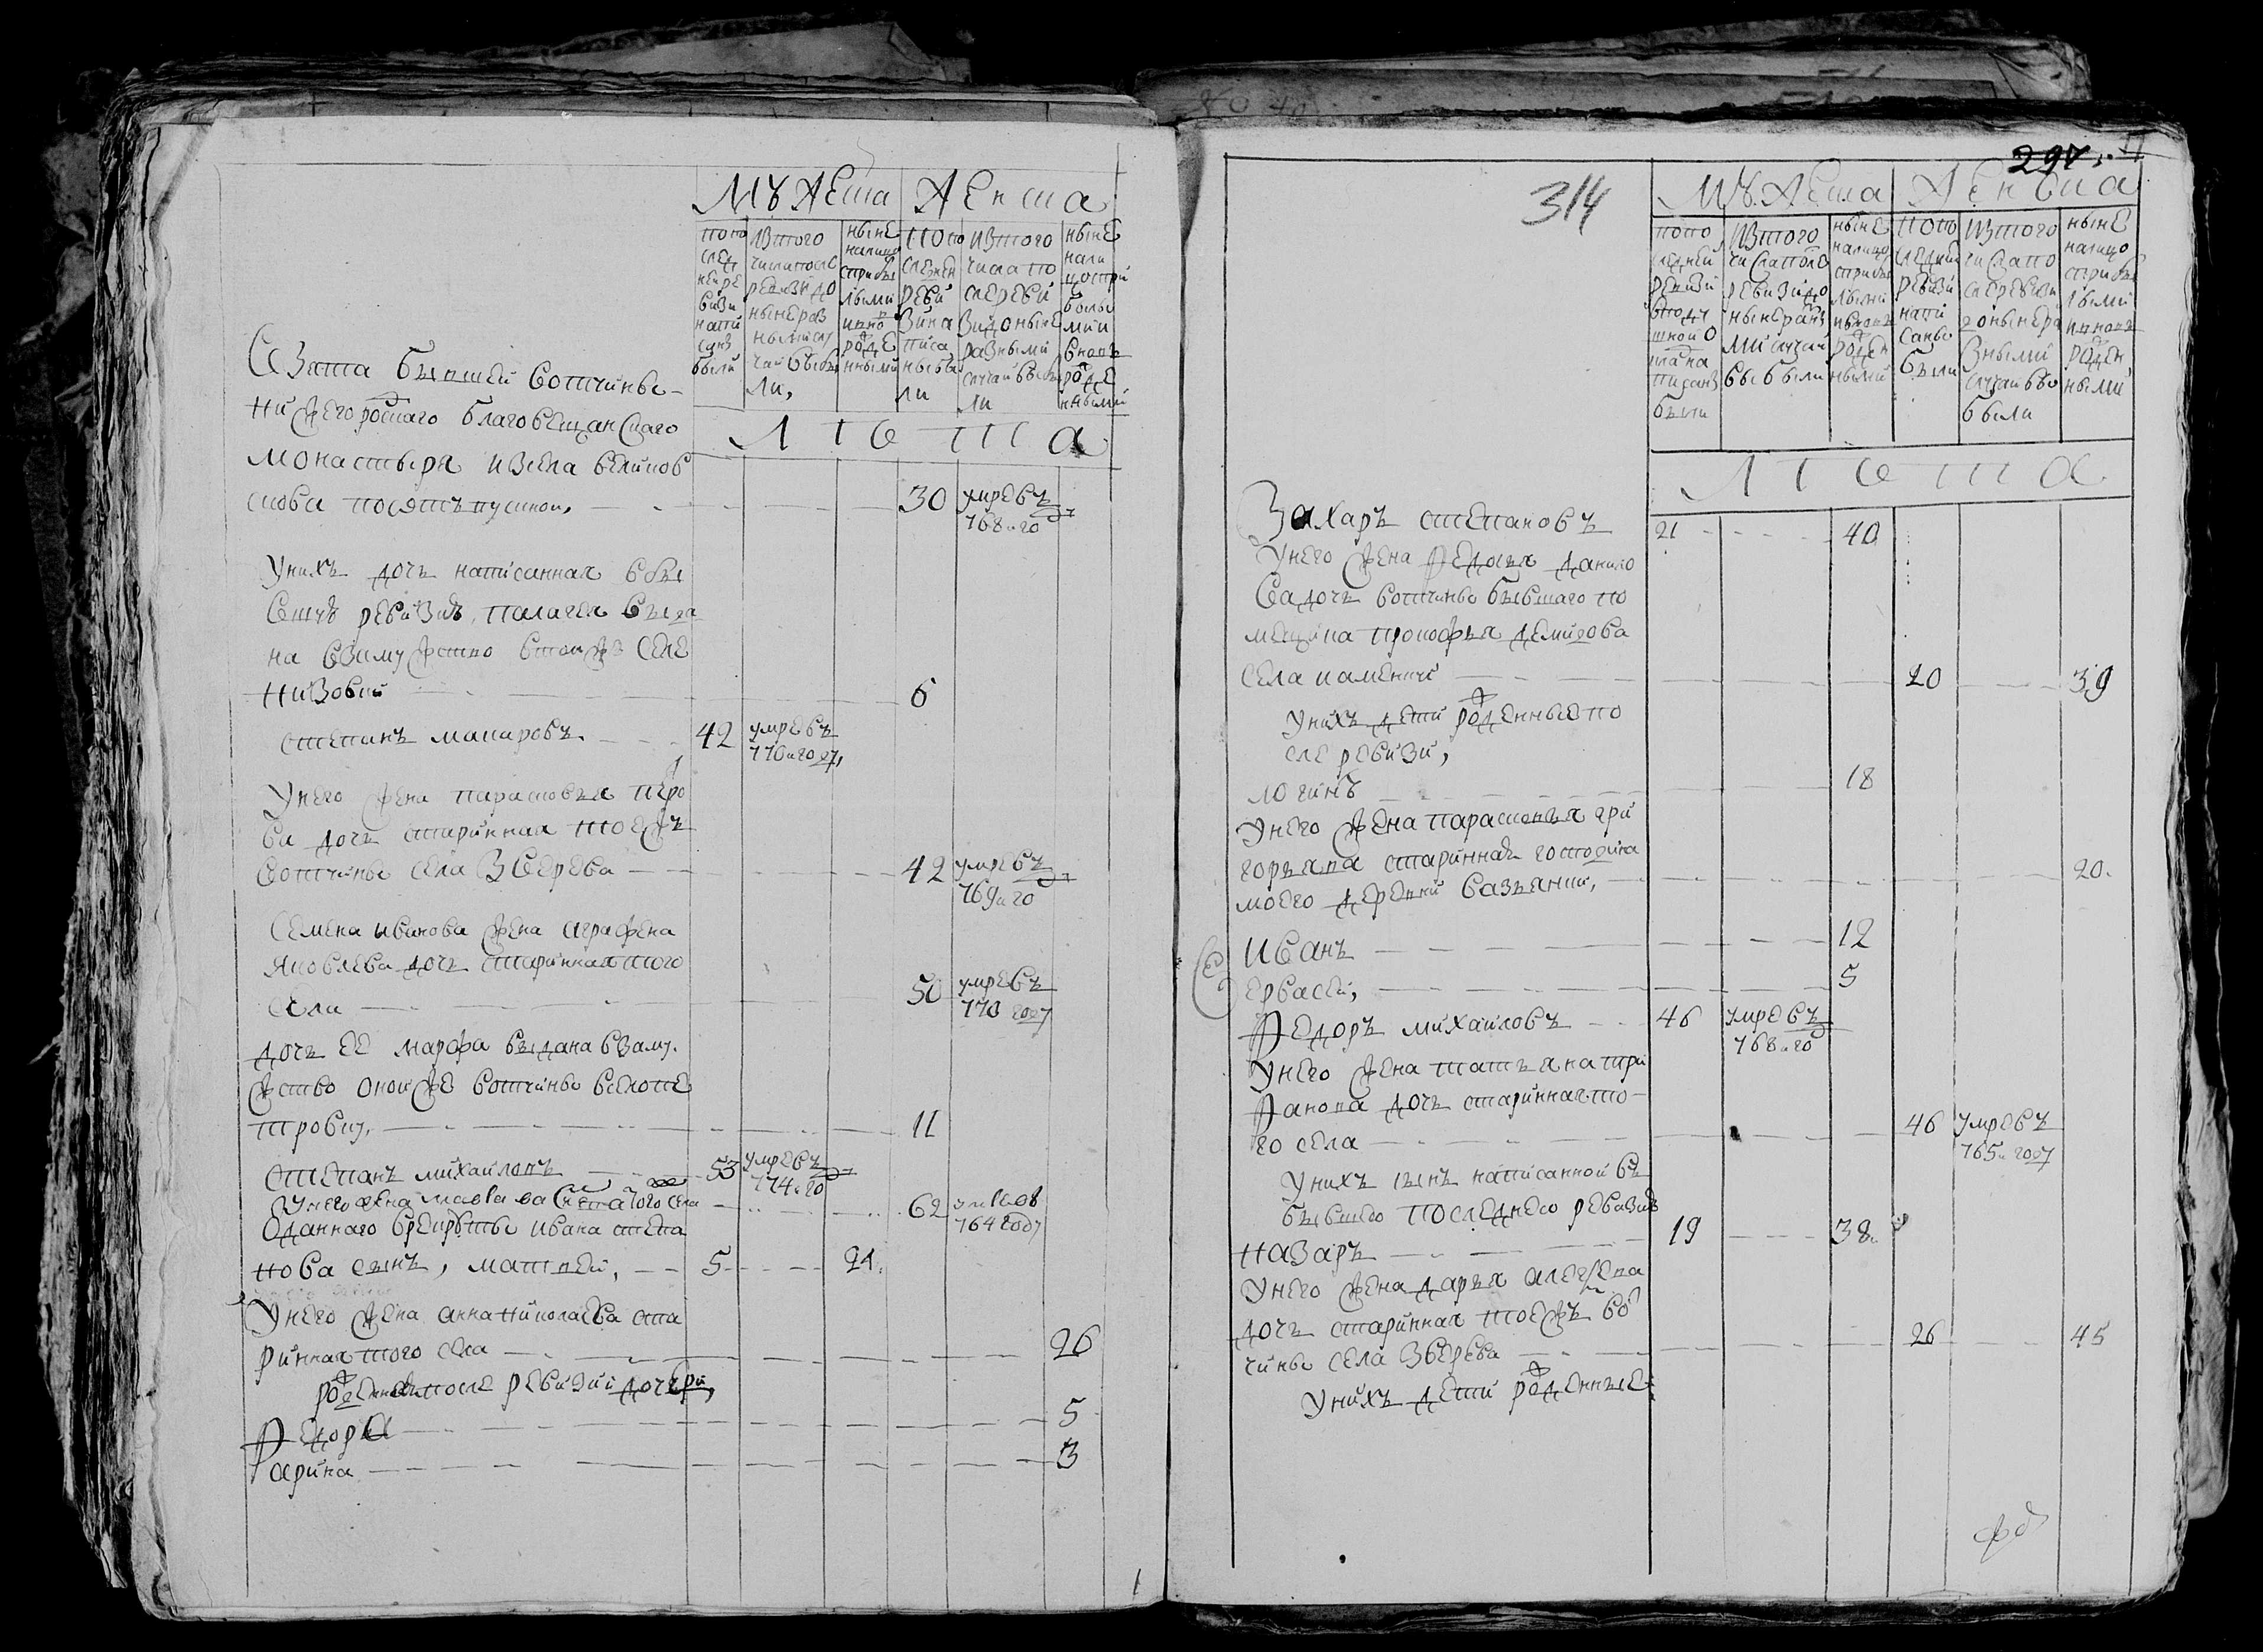 мужеска женска
попо
след
ней ре
визи
напи
санѣ
были
изтого
числапосле
ревизиидо
нынераз
нымислу
чаивыбы
ли,
ныне
налицо
сприбы
лыми
ивно
роже
нными
попо
следней
реви
зина
писа
ныбы
ли
изтого
числапо
слереви
зидоныне
разными
случаивыбы
ли
ныне
нали
цоспри
былы
мии
вновь
роже
нными
лѣта
взята бывшей вотчины
нижегороцкаго благовещанскаго
монастыря изсела великов
скова посятъпускной, 30 умре въ 768м го
унихъ дочь написанная вбы
вшую ревизию, палагея выда
на взамужство втомже селе
низовки 6
степанъ макаровъ 42 умре въ 770м году,
унего жена парасковья петро
ва дочь старинная тоежъ
вотчины села зверева 42 умре въ 769м го
семена иванова жена аграфена
яковлева дочь стариннаятого
села 50 умре въ 770 году
дочь ее марфа выдана взаму
жство онойже вотчины
11
степанъ михаиловъ 53 умре въ 774м го
унего жена того села 62 764 году
отданнаго врекруты ивана степа
нова сынъ, матвей, 5 24.
унего жена анна николаева ста
ринная того села 26
рожденныепосле ревизии дочери,
федора 5
арина 3
294.
314
мужеска женска
попо
следней
ревизи
подуш
шной о
кладна
писанъ
были
изтого
числапосле
ревизидо
ныне разны
ми случаи
выбыли
ныне
налицо
сприбы
лыми
ивновь
рожен
ными
попо
следней
ревизи
напи
саны
были
изтого
числапо
слеревизи
доныне ра
зными
случаивы
были
ныне
налицо
сприбы
лыми
ивновь
рожен
ными
лѣта
захаръ степановъ 21 40
унего жена федосья данило
ва дочь вотчины бывшаго по
мещика прокофья демидова
села каменки 20 39
унихъ дети рожденные по
сле ревизи,
логинъ 18
унего жена парасковья гри
горьява старинная господина
моего деревни вазьянки, 20.
иванъ 12
ервасеи, 5
федоръ михаиловъ 46 умре въ 768м го
унего жена татьяна три
фанова дочь старинная то
го села 46 умре въ 765м году
унихъ сынъ написанной въ
бывшею последнею ревизию
назаръ 19 38.
унего жена дарья алексева
дочь старинная тоежъ во
чины села зверева 26 45
унихъ дети рожденные